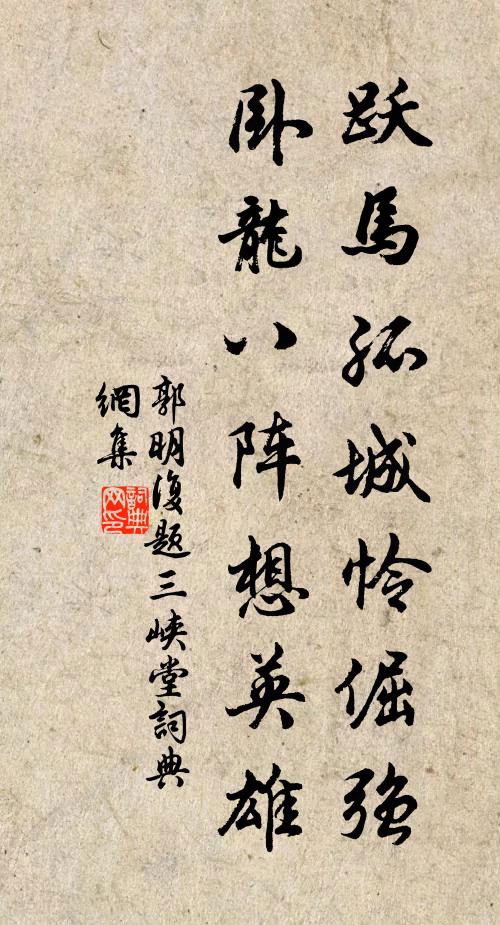 跃馬孤城怜倔强
卧龍八阵想英雄
郭明復题三峡堂詞典
網集
詞典网印